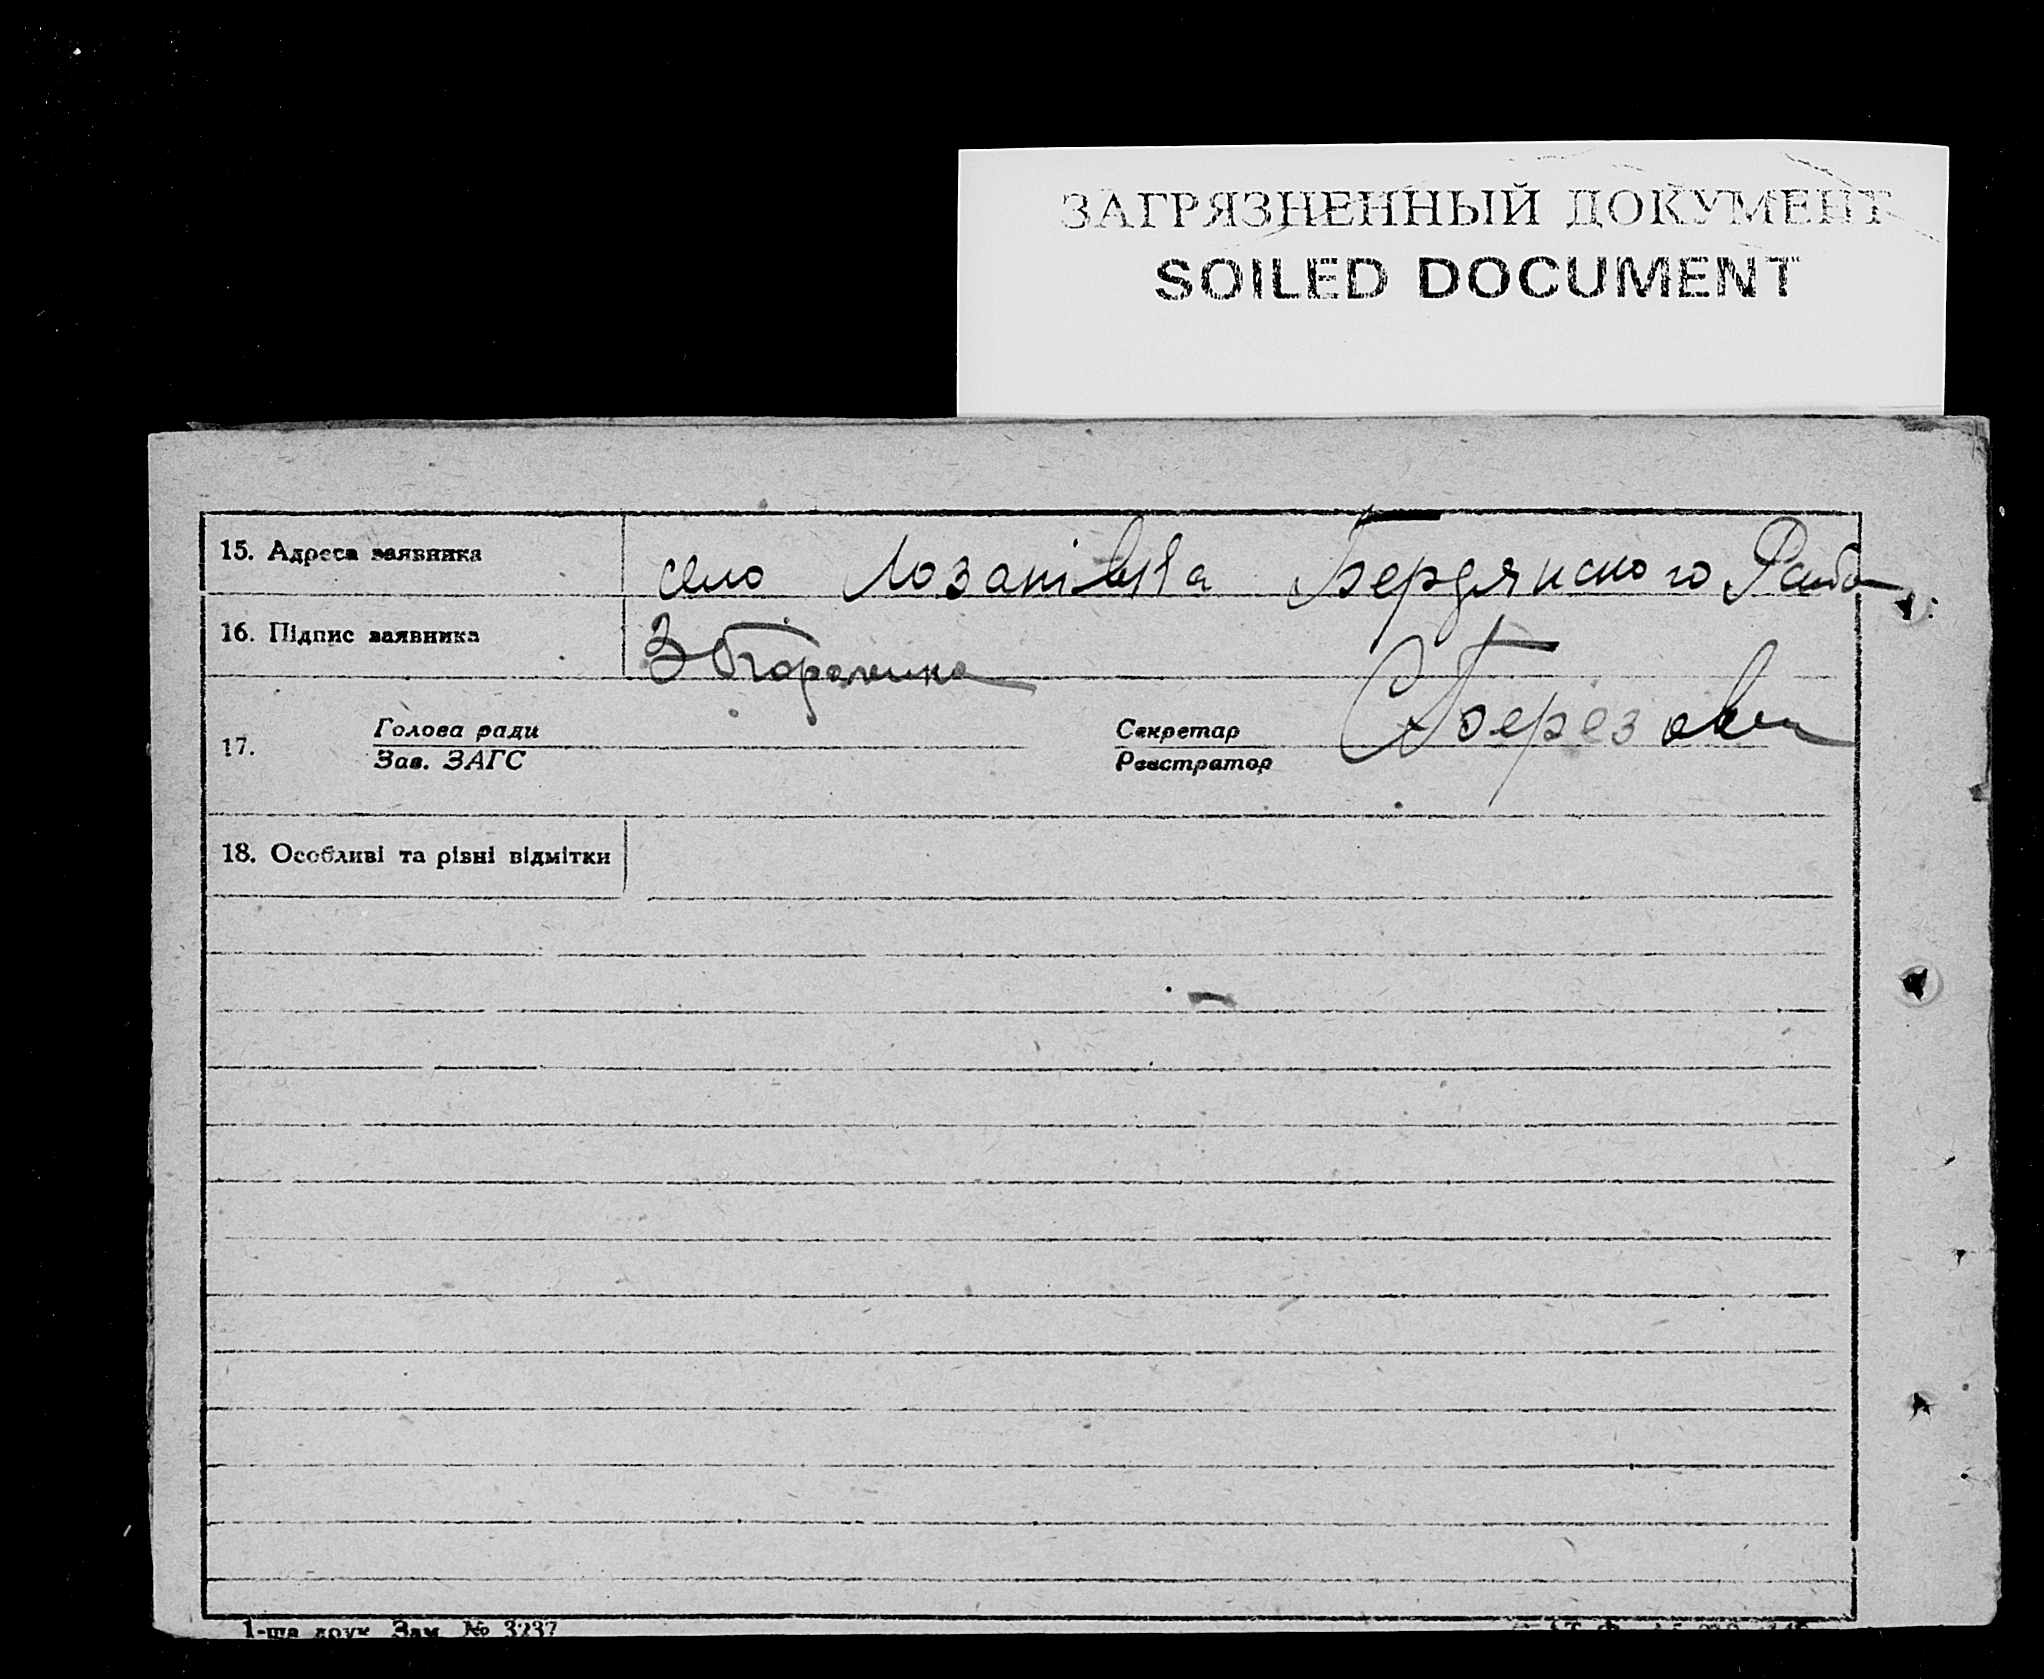 ЗАГРЯЗНЕННЫЙ ДОКУМЕНТ
SOILED DOCUMENT
15. Адреса заявника село Лозанівка Бердянского
16. Підпис заявника
17. Голова ради Секретар
Зав. ЗАГС Реєстратор
18. Особливі та різні відмітки
1-ша друк. Зам. № 3237